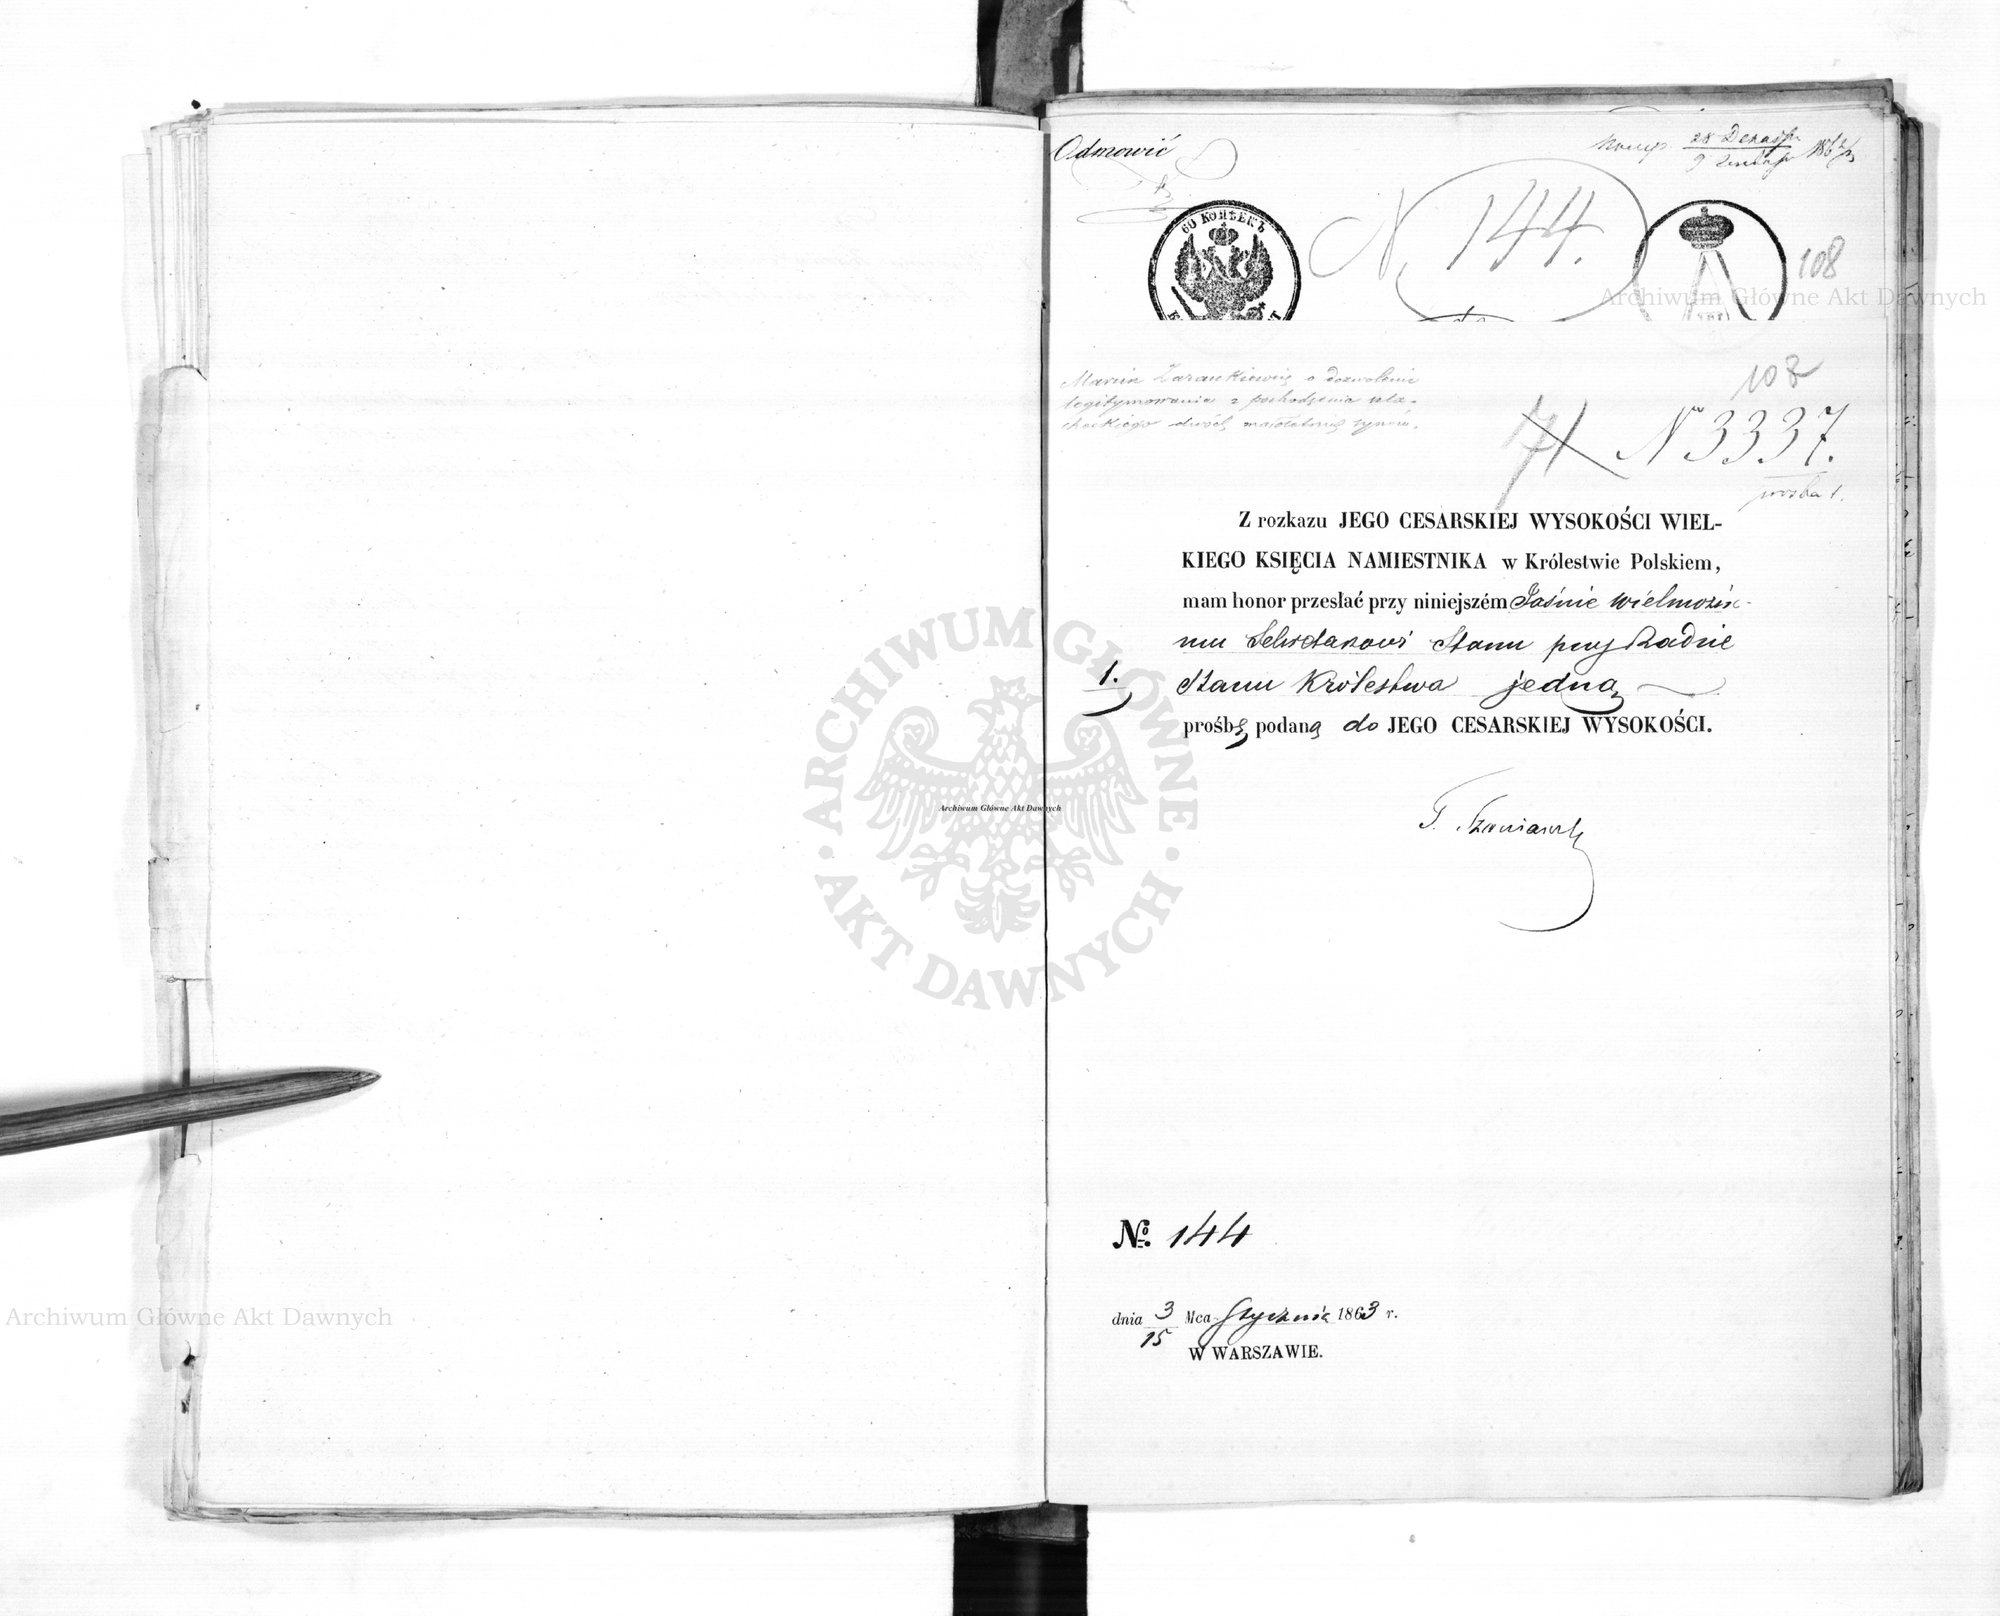 Odmowić
28 Декабр
9 Январ 1862/3
60 КОПѢЕКЪ
N. 144.
108
Archiwum Główne Akt Dawnych
108
Marcin Zarankiewicz o dozwolenie
legitymowania z pochodzenia szla-
checkiego dwóch małoletnich synów.
71
No 3337.
prośba 1.
Z rozkazu JEGO CESARSKIEJ WYSOKOŚCI WIEL-
KIEGO KSIĘCIA NAMIESTNIKA w Królestwie Polskiem,
mam honor przesłać przy niniejszém Jaśnie Wielmożne-
mu Sekretarzowi Stanu przy Radzie
1. Stanu Królestwa jedną
prośbę podaną do JEGO CESARSKIEJ WYSOKOŚCI.
ARCHIWUM GŁÓWNE
AKT DAWNYCH
Archiwum Główne Akt Dawnych
No. 144
dnia 3/15 Mca Stycznia 1863 r.
W WARSZAWIE.
Archiwum Główne Akt Dawnych